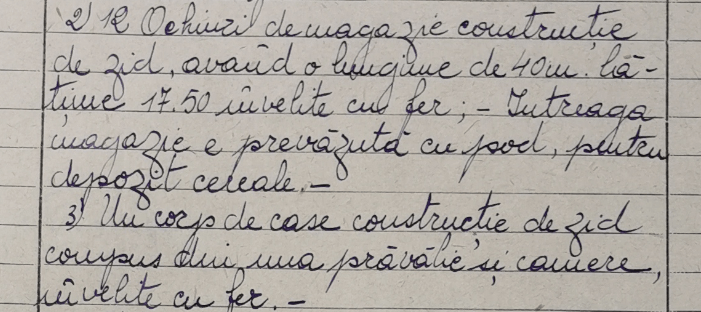 2) 12 Ochiuri de magazie constructie
de zid, avaîid o lungime de 40m. lă-
time 17.50 învelite cu fer; - Intreaga
magazie e prevăzută cu pod, pentru
depozit cereale. -
3) Un corp de case constructie de zid
compus din una prăvălie și camere,
învelite cu fer. -